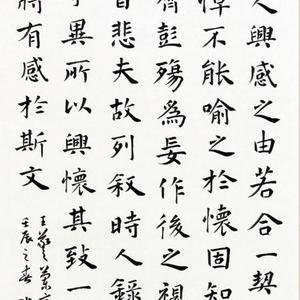 人興感之由若合一契
悼不能喻之於懷固知
齊彭殤為妄作後之視
昔悲夫故列叙時人錄
異所以興懷其致一
將有感於斯文
王羲之蘭亭
壬辰之春